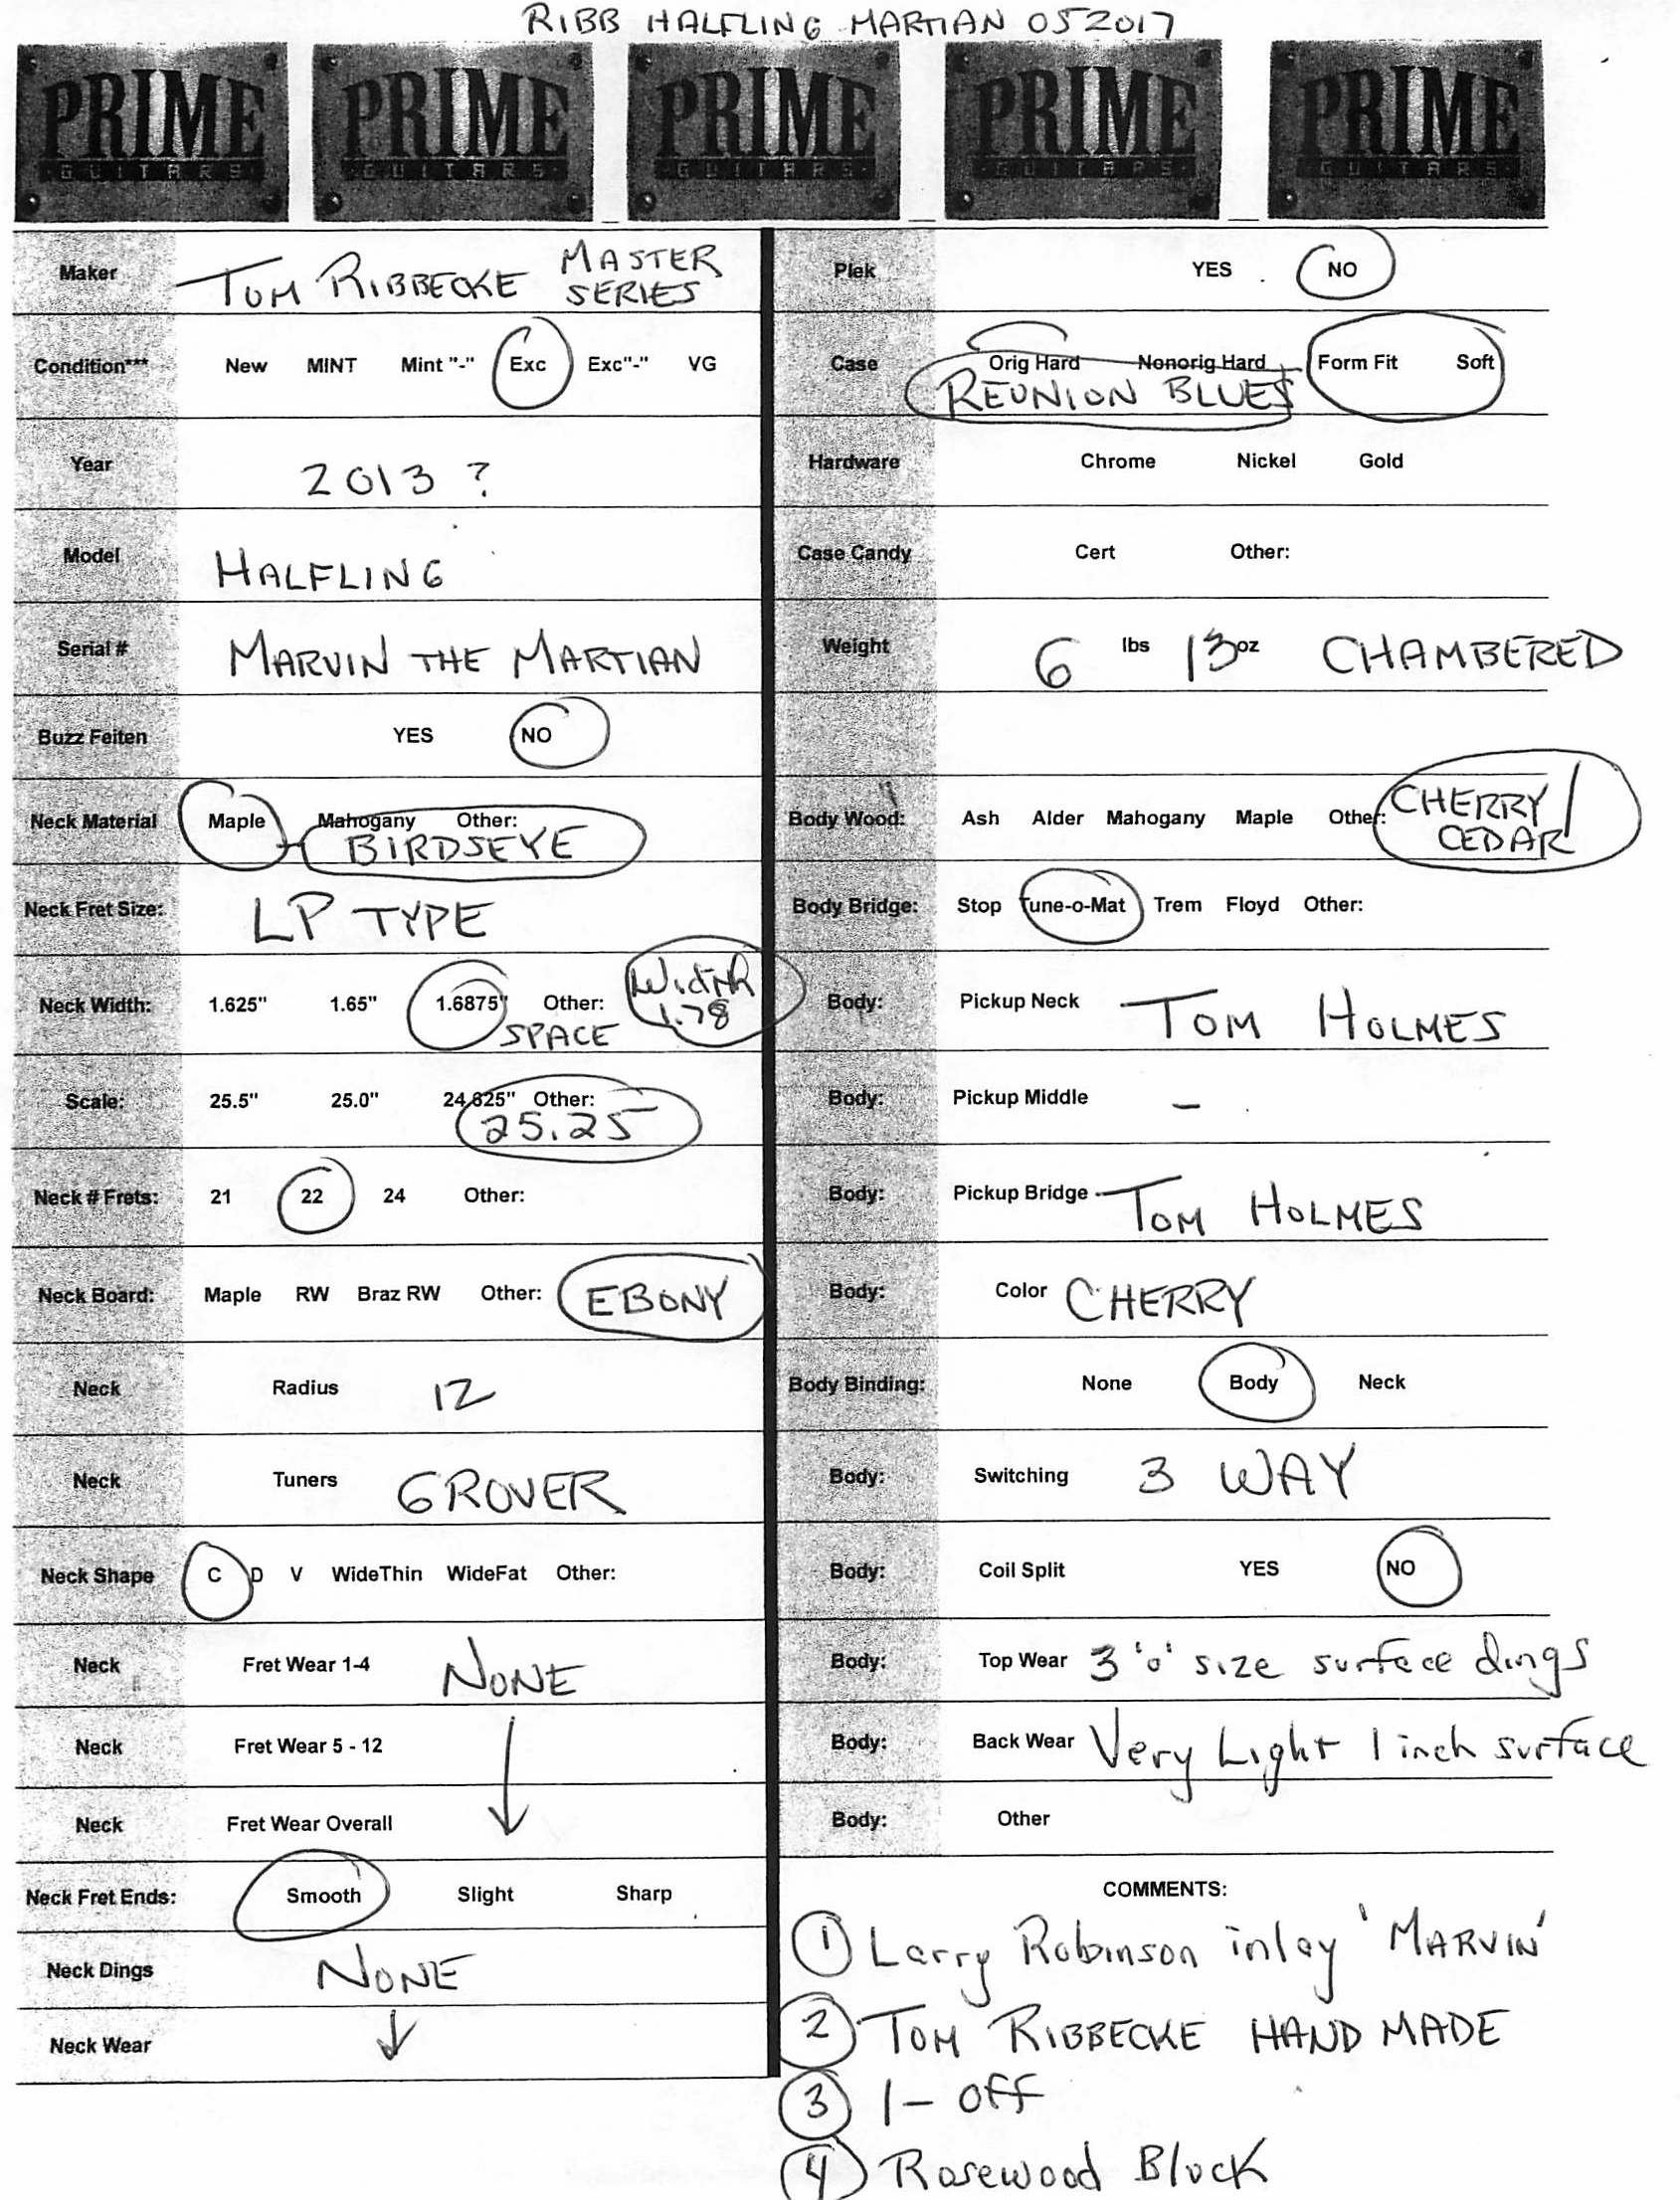 RIBB HALFLING MARTIAN 052017
PRIME PRIME PRIME PRIME PRIME
GUITARS GUITARS GUITARS GUITARS GUITARS
Maker TOM RIBBECKE MASTER SERIES
Condition*** New MINT Mint "-" Exc Exc"-" VG
Year 2013 ?
Model HALFLING
Serial # MARVIN THE MARTIAN
Buzz Feiten YES NO
Neck Material Maple Mahogany Other:
BIRDSEYE
Neck Fret Size: LP TYPE
Neck Width: 1.625" 1.65" 1.6875" Other: Width
SPACE 1.78
Scale: 25.5" 25.0" 24.625" Other:
25.25
Neck # Frets: 21 22 24 Other:
Neck Board: Maple RW Braz RW Other: EBONY
Neck Radius 12
Neck Tuners GROVER
Neck Shape C D V WideThin WideFat Other:
Neck Fret Wear 1-4 NONE
Neck Fret Wear 5 - 12
Neck Fret Wear Overall
Neck Fret Ends: Smooth Slight Sharp
Neck Dings NONE
Neck Wear
Plek YES NO
Case Orig Hard Nonorig Hard Form Fit Soft
REUNION BLUES
Hardware Chrome Nickel Gold
Case Candy Cert Other:
Weight 6 lbs 13 oz CHAMBERED
Body Wood: Ash Alder Mahogany Maple Other: CHERRY/
CEDAR
Body Bridge: Stop Tune-o-Mat Trem Floyd Other:
Body: Pickup Neck TOM HOLMES
Body: Pickup Middle –
Body: Pickup Bridge TOM HOLMES
Body: Color CHERRY
Body Binding: None Body Neck
Body: Switching 3 WAY
Body: Coil Split YES NO
Body: Top Wear 3 'o' size surface dings
Body: Back Wear Very Light 1 inch surface
Body: Other
COMMENTS:
1 Larry Robinson inlay 'MARVIN'
2 TOM RIBBECKE HAND MADE
3 1- OFF
4 Rosewood Block